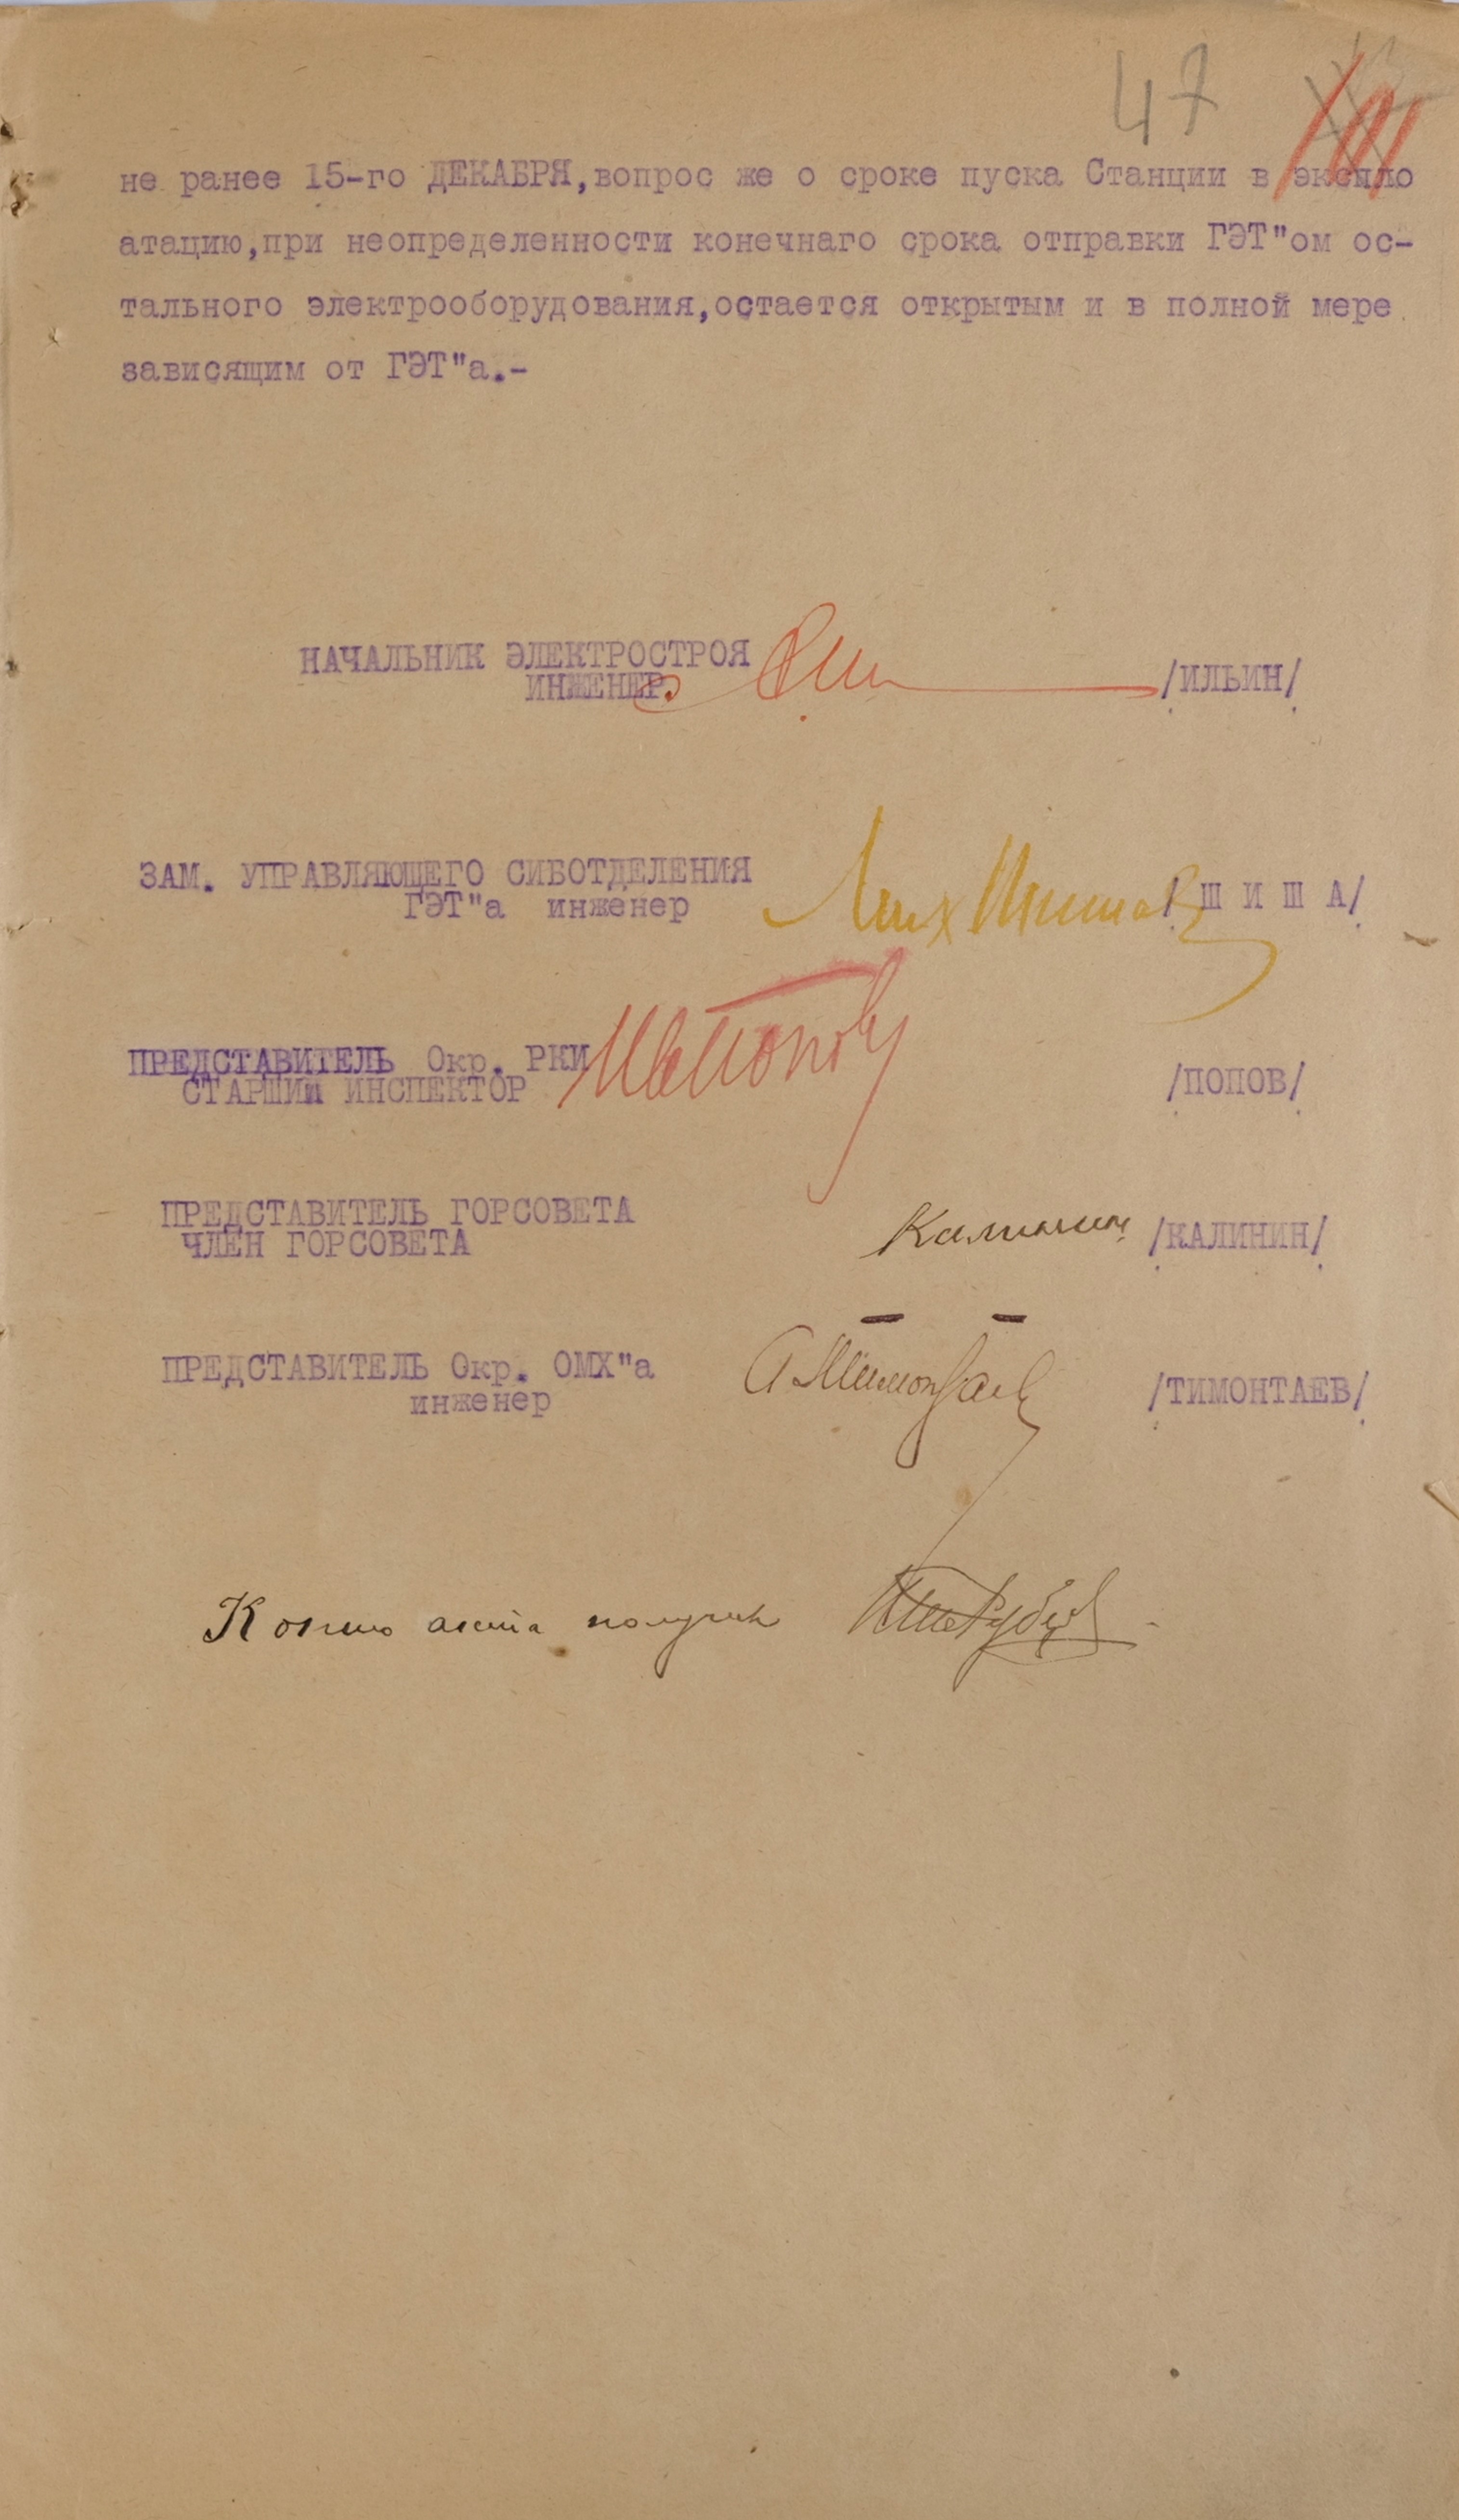 47
не ранее 15-го ДЕКАБРЯ, вопрос же о сроке пуска Станции в эксппло
атацию, при неопределенности конечнаго срока отправки ГЭТ"ом ос-
тального электрооборудования, остается открытым и в полной мере
зависящим от ГЭТ"а.-
НАЧАЛЬНИК ЭЛЕКТРОСТРОЯ
ИНЖЕНЕР. /ИЛЬИН/
ЗАМ. УПРАВЛЯЮЩЕГО СИБОТДЕЛЕНИЯ
ГЭТ"а инженер /Ш И Ш А/
ПРЕДСТАВИТЕЛЬ Окр. РКИ
СТАРШИЙ ИНСПЕКТОР /ПОПОВ/
ПРЕДСТАВИТЕЛЬ ГОРСОВЕТА
ЧЛЕН ГОРСОВЕТА Калинин /КАЛИНИН/
ПРЕДСТАВИТЕЛЬ Окр. ОМХ"а
инженер А. Тимонтаев /ТИМОНТАЕВ/
Копию акта получил